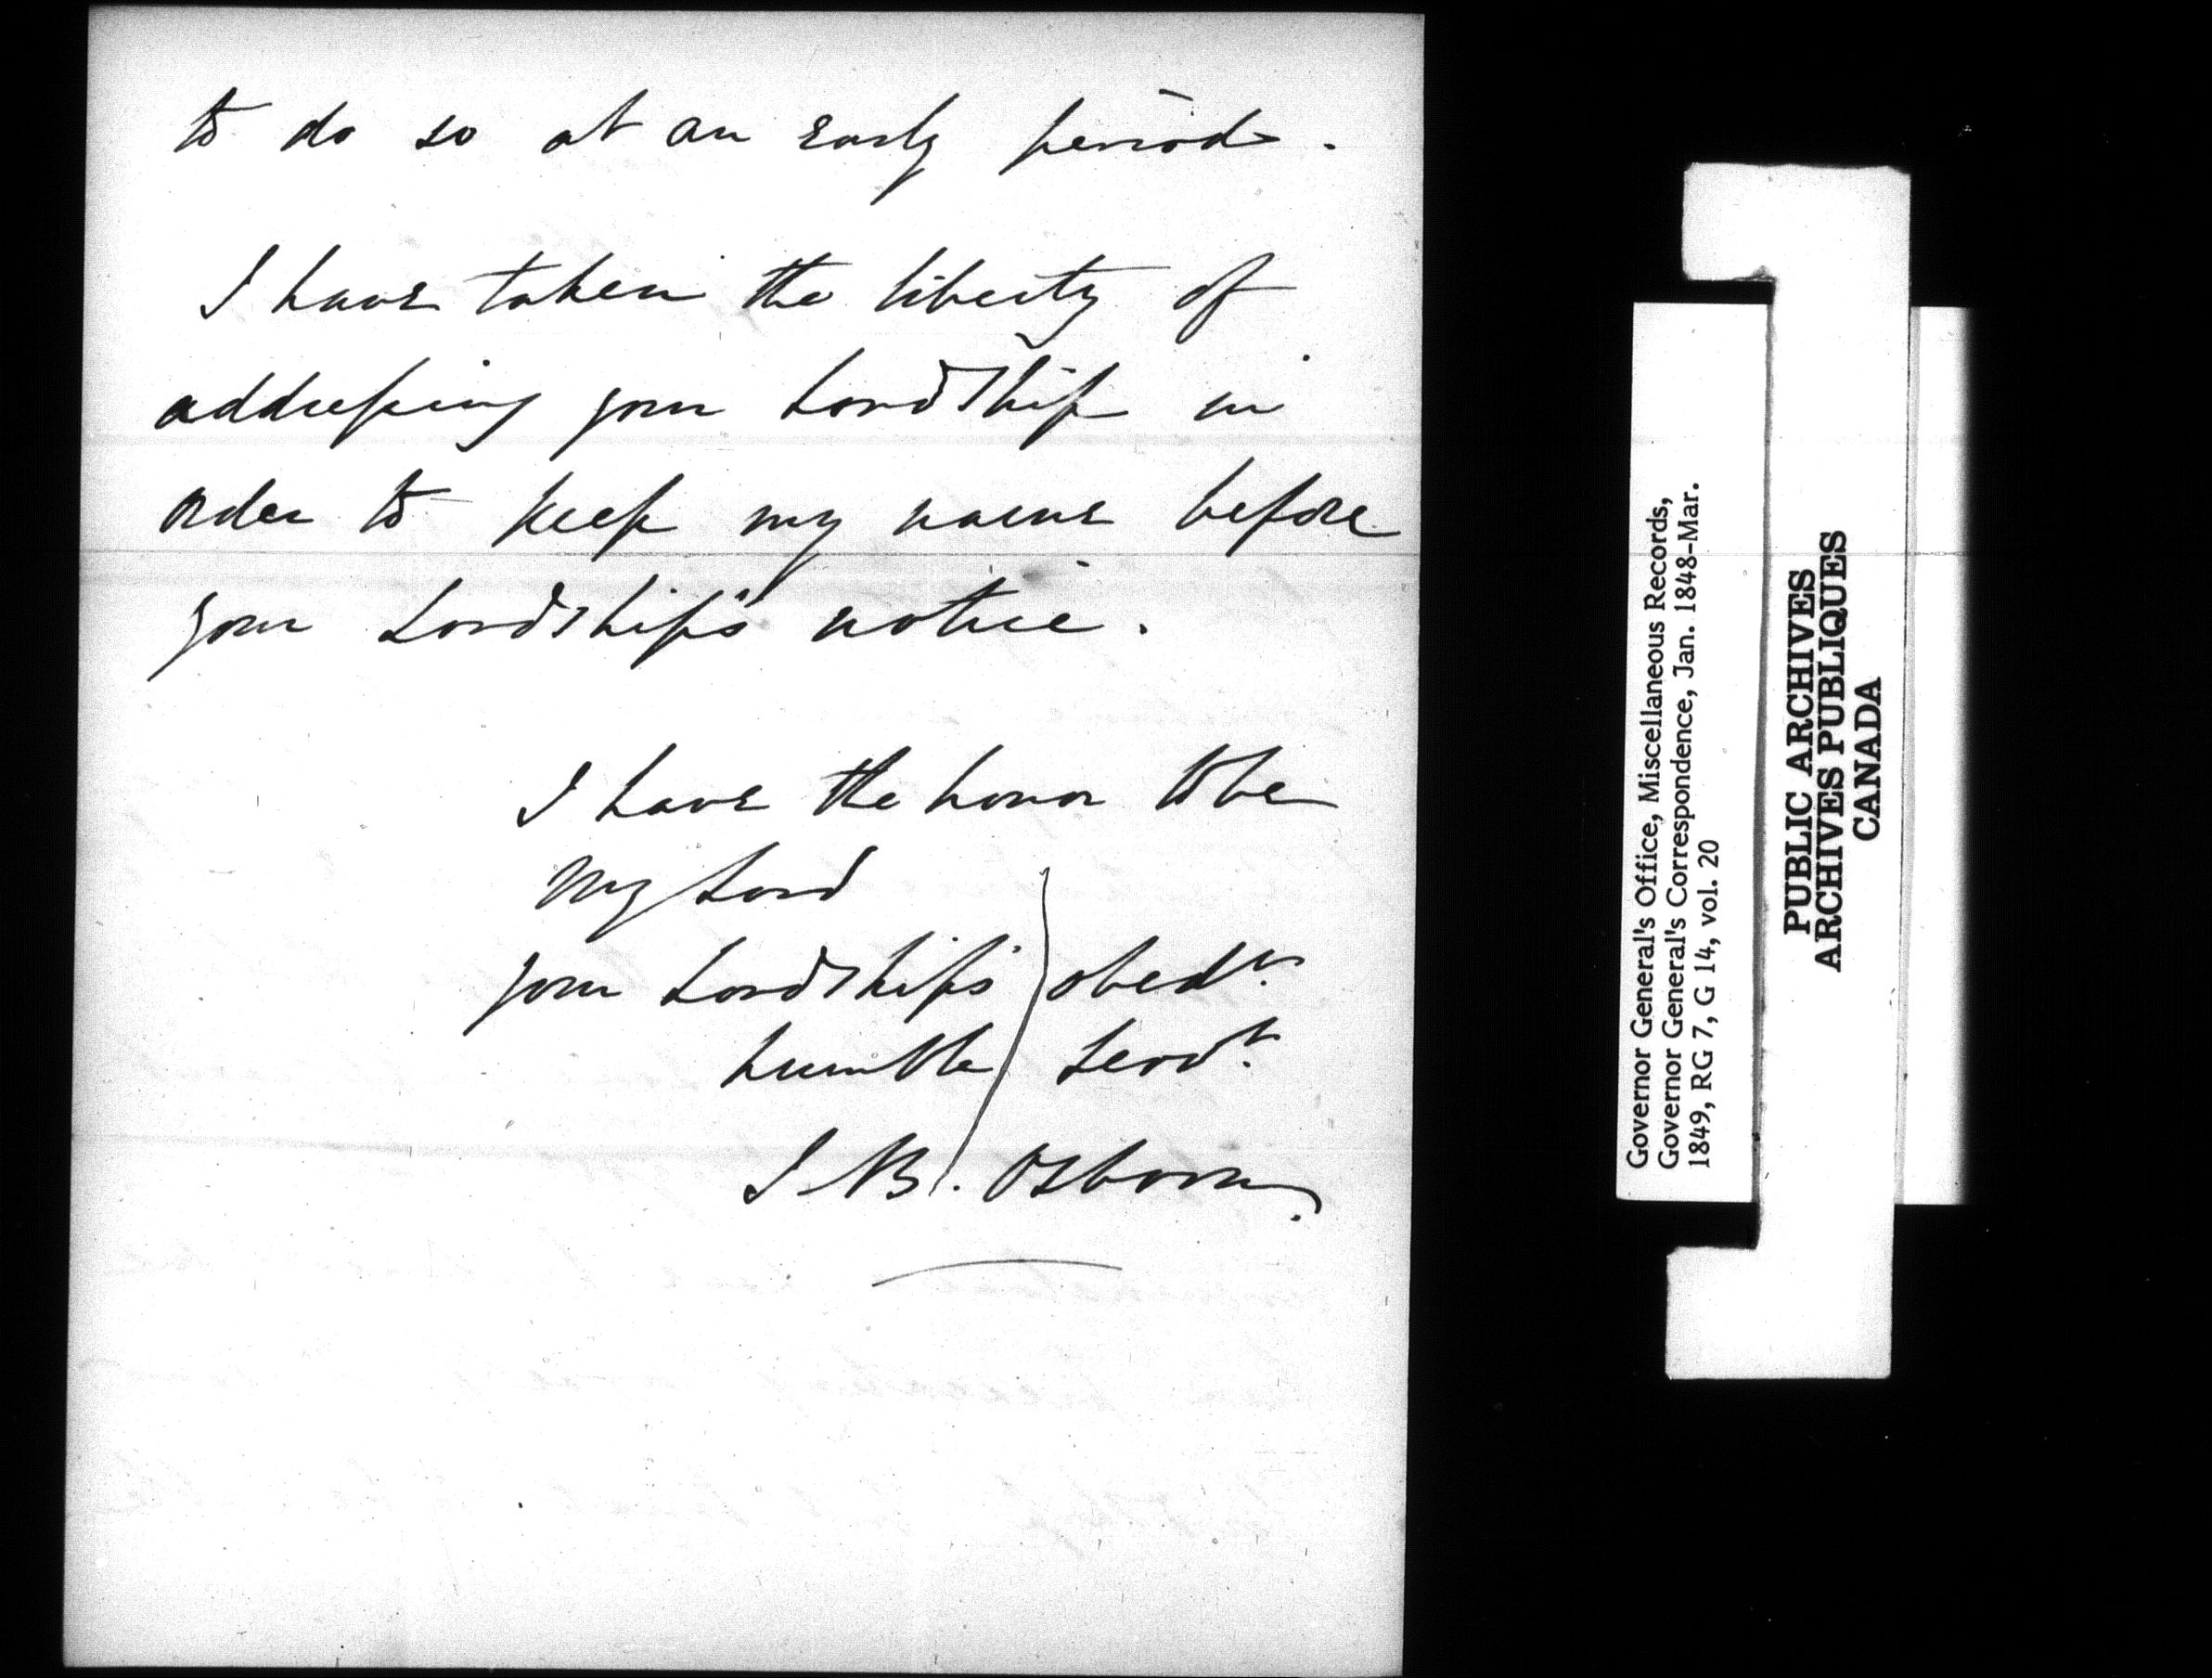 to do so at an early period.
I have taken the liberty of
addressing your Lordship in
order to keep my name before
your Lordship's notice.
I have the honor to be
My Lord
your Lordship's obedt.
humble Servt.
J B. Osborn.
Governor General's Office, Miscellaneous Records,
Governor General's Correspondence, Jan. 1848-Mar.
1849, RG 7, G 14, vol. 20
PUBLIC ARCHIVES
ARCHIVES PUBLIQUES
CANADA